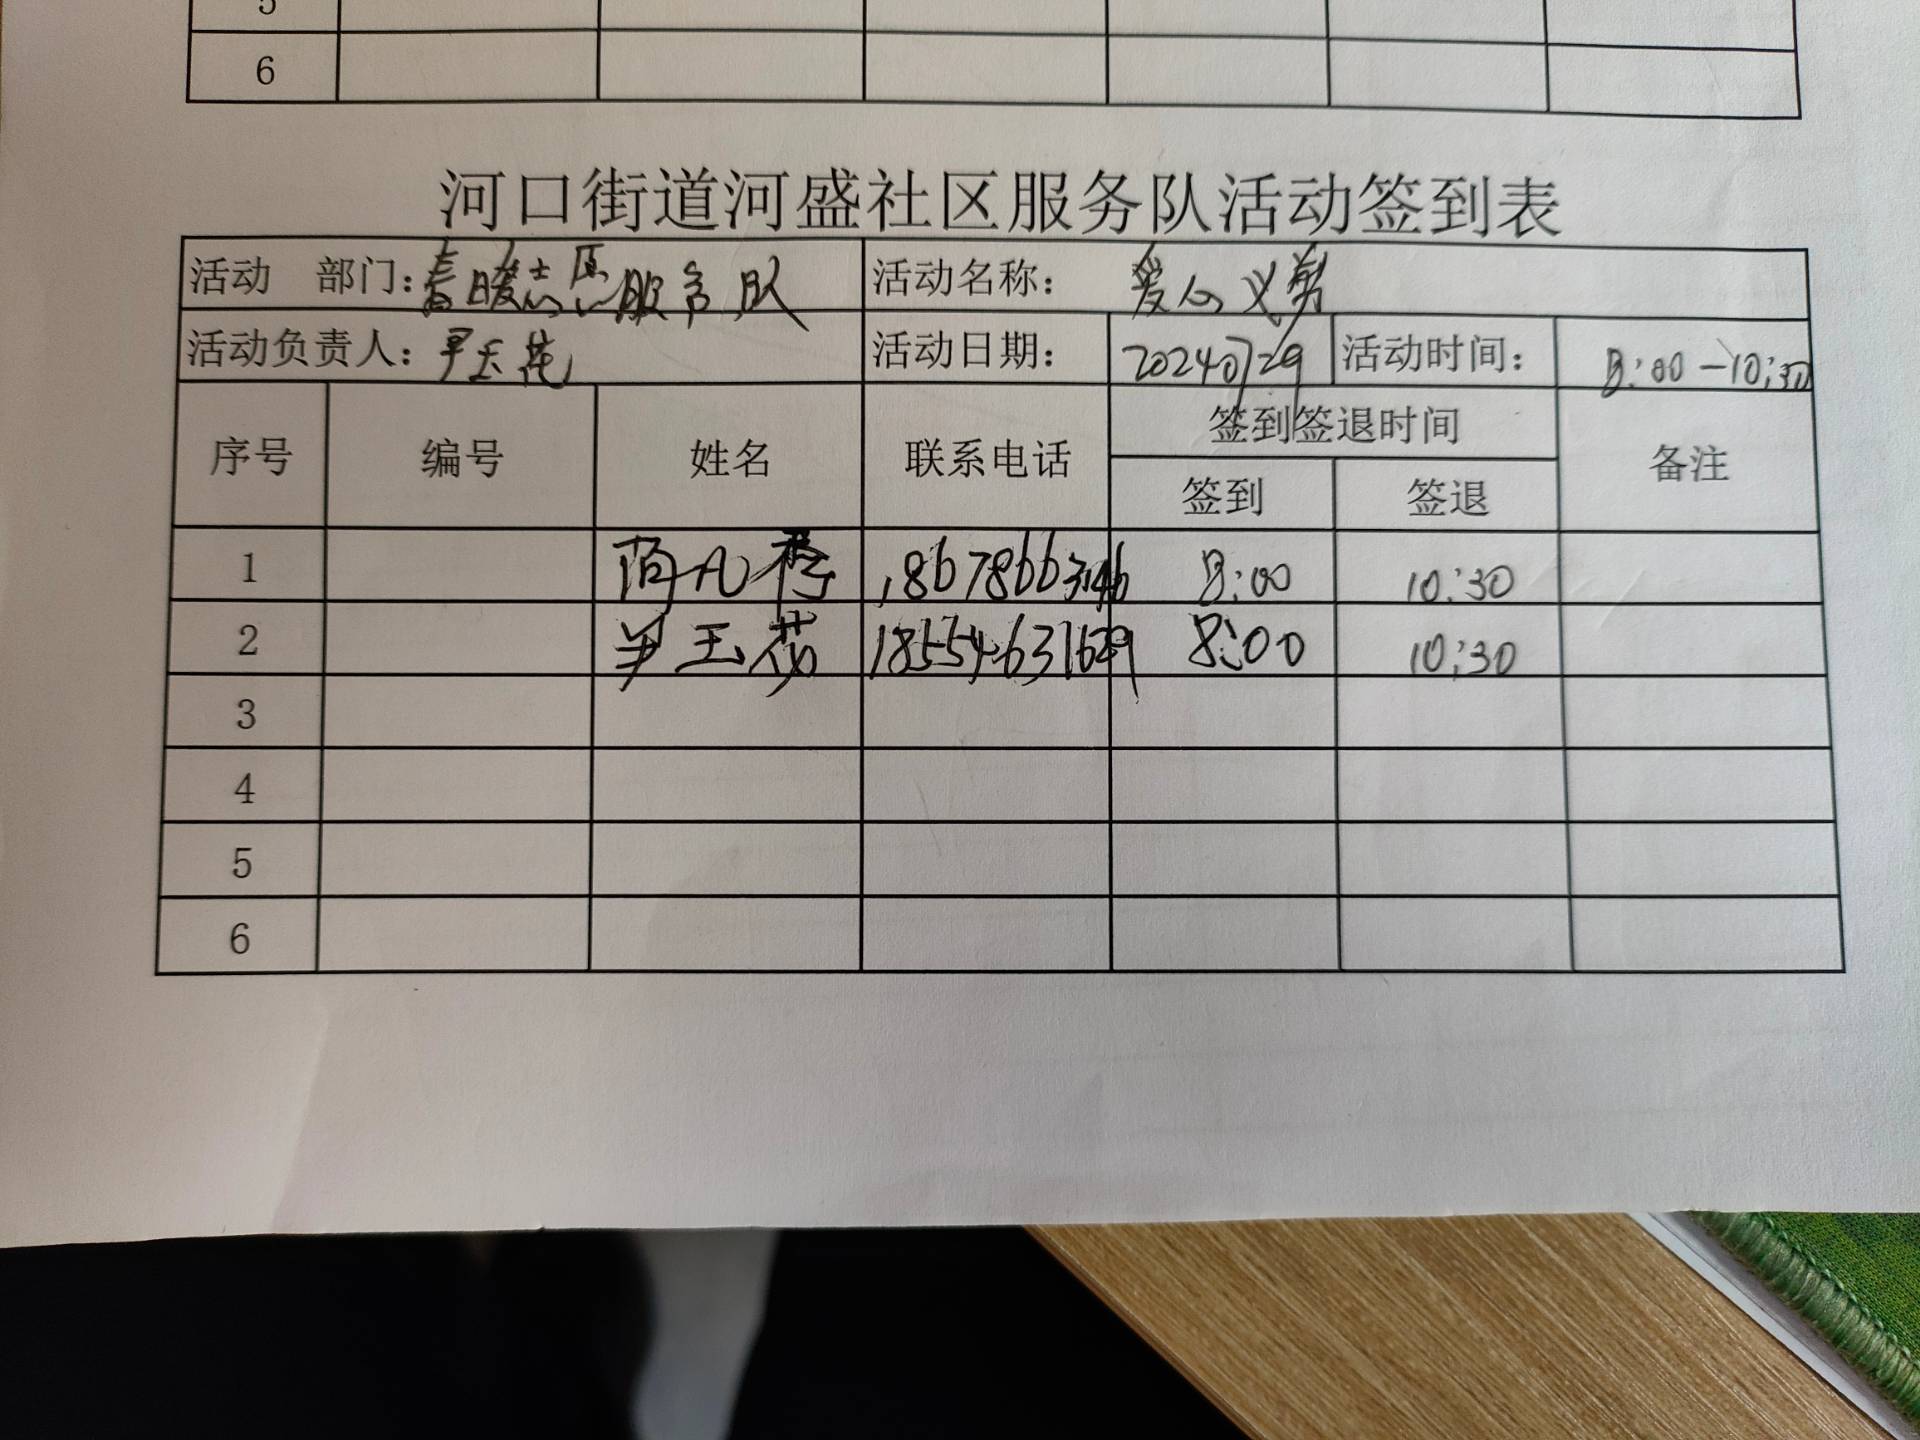 5
6
河口街道河盛社区服务队活动签到表
活动 部门：春暖志愿服务队 活动名称： 爱心义剪
活动负责人：尹玉花 活动日期： 20240729 活动时间： 8:00-10:30
序号 编号 姓名 联系电话 签到签退时间 备注
签到 签退
1 18678663146 8:00 10:30
2 尹玉花 18554631629 8:00 10:30
3
4
5
6